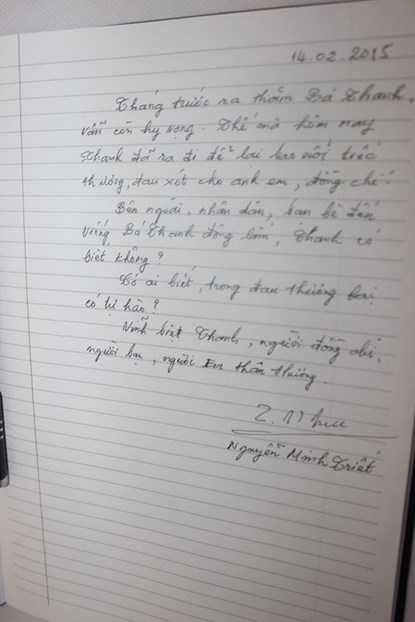 14.02.2015
Tháng trước ra thăm Bá Thanh,
vẫn còn hy vọng. Thế mà hôm nay
Thanh đã ra đi để lại bao nuối tiếc
thương, đau xót cho anh em, đồng chí.
Bên ngoài, nhân dân, bạn bè đến
viếng Bá Thanh đông lắm, Thanh có
biết không?
Có ai biết, trong đau thương
có tự hào?
Vĩnh biệt Thanh, người đồng chí,
người bạn, người Em thân thương.
Nguyễn Minh Triết